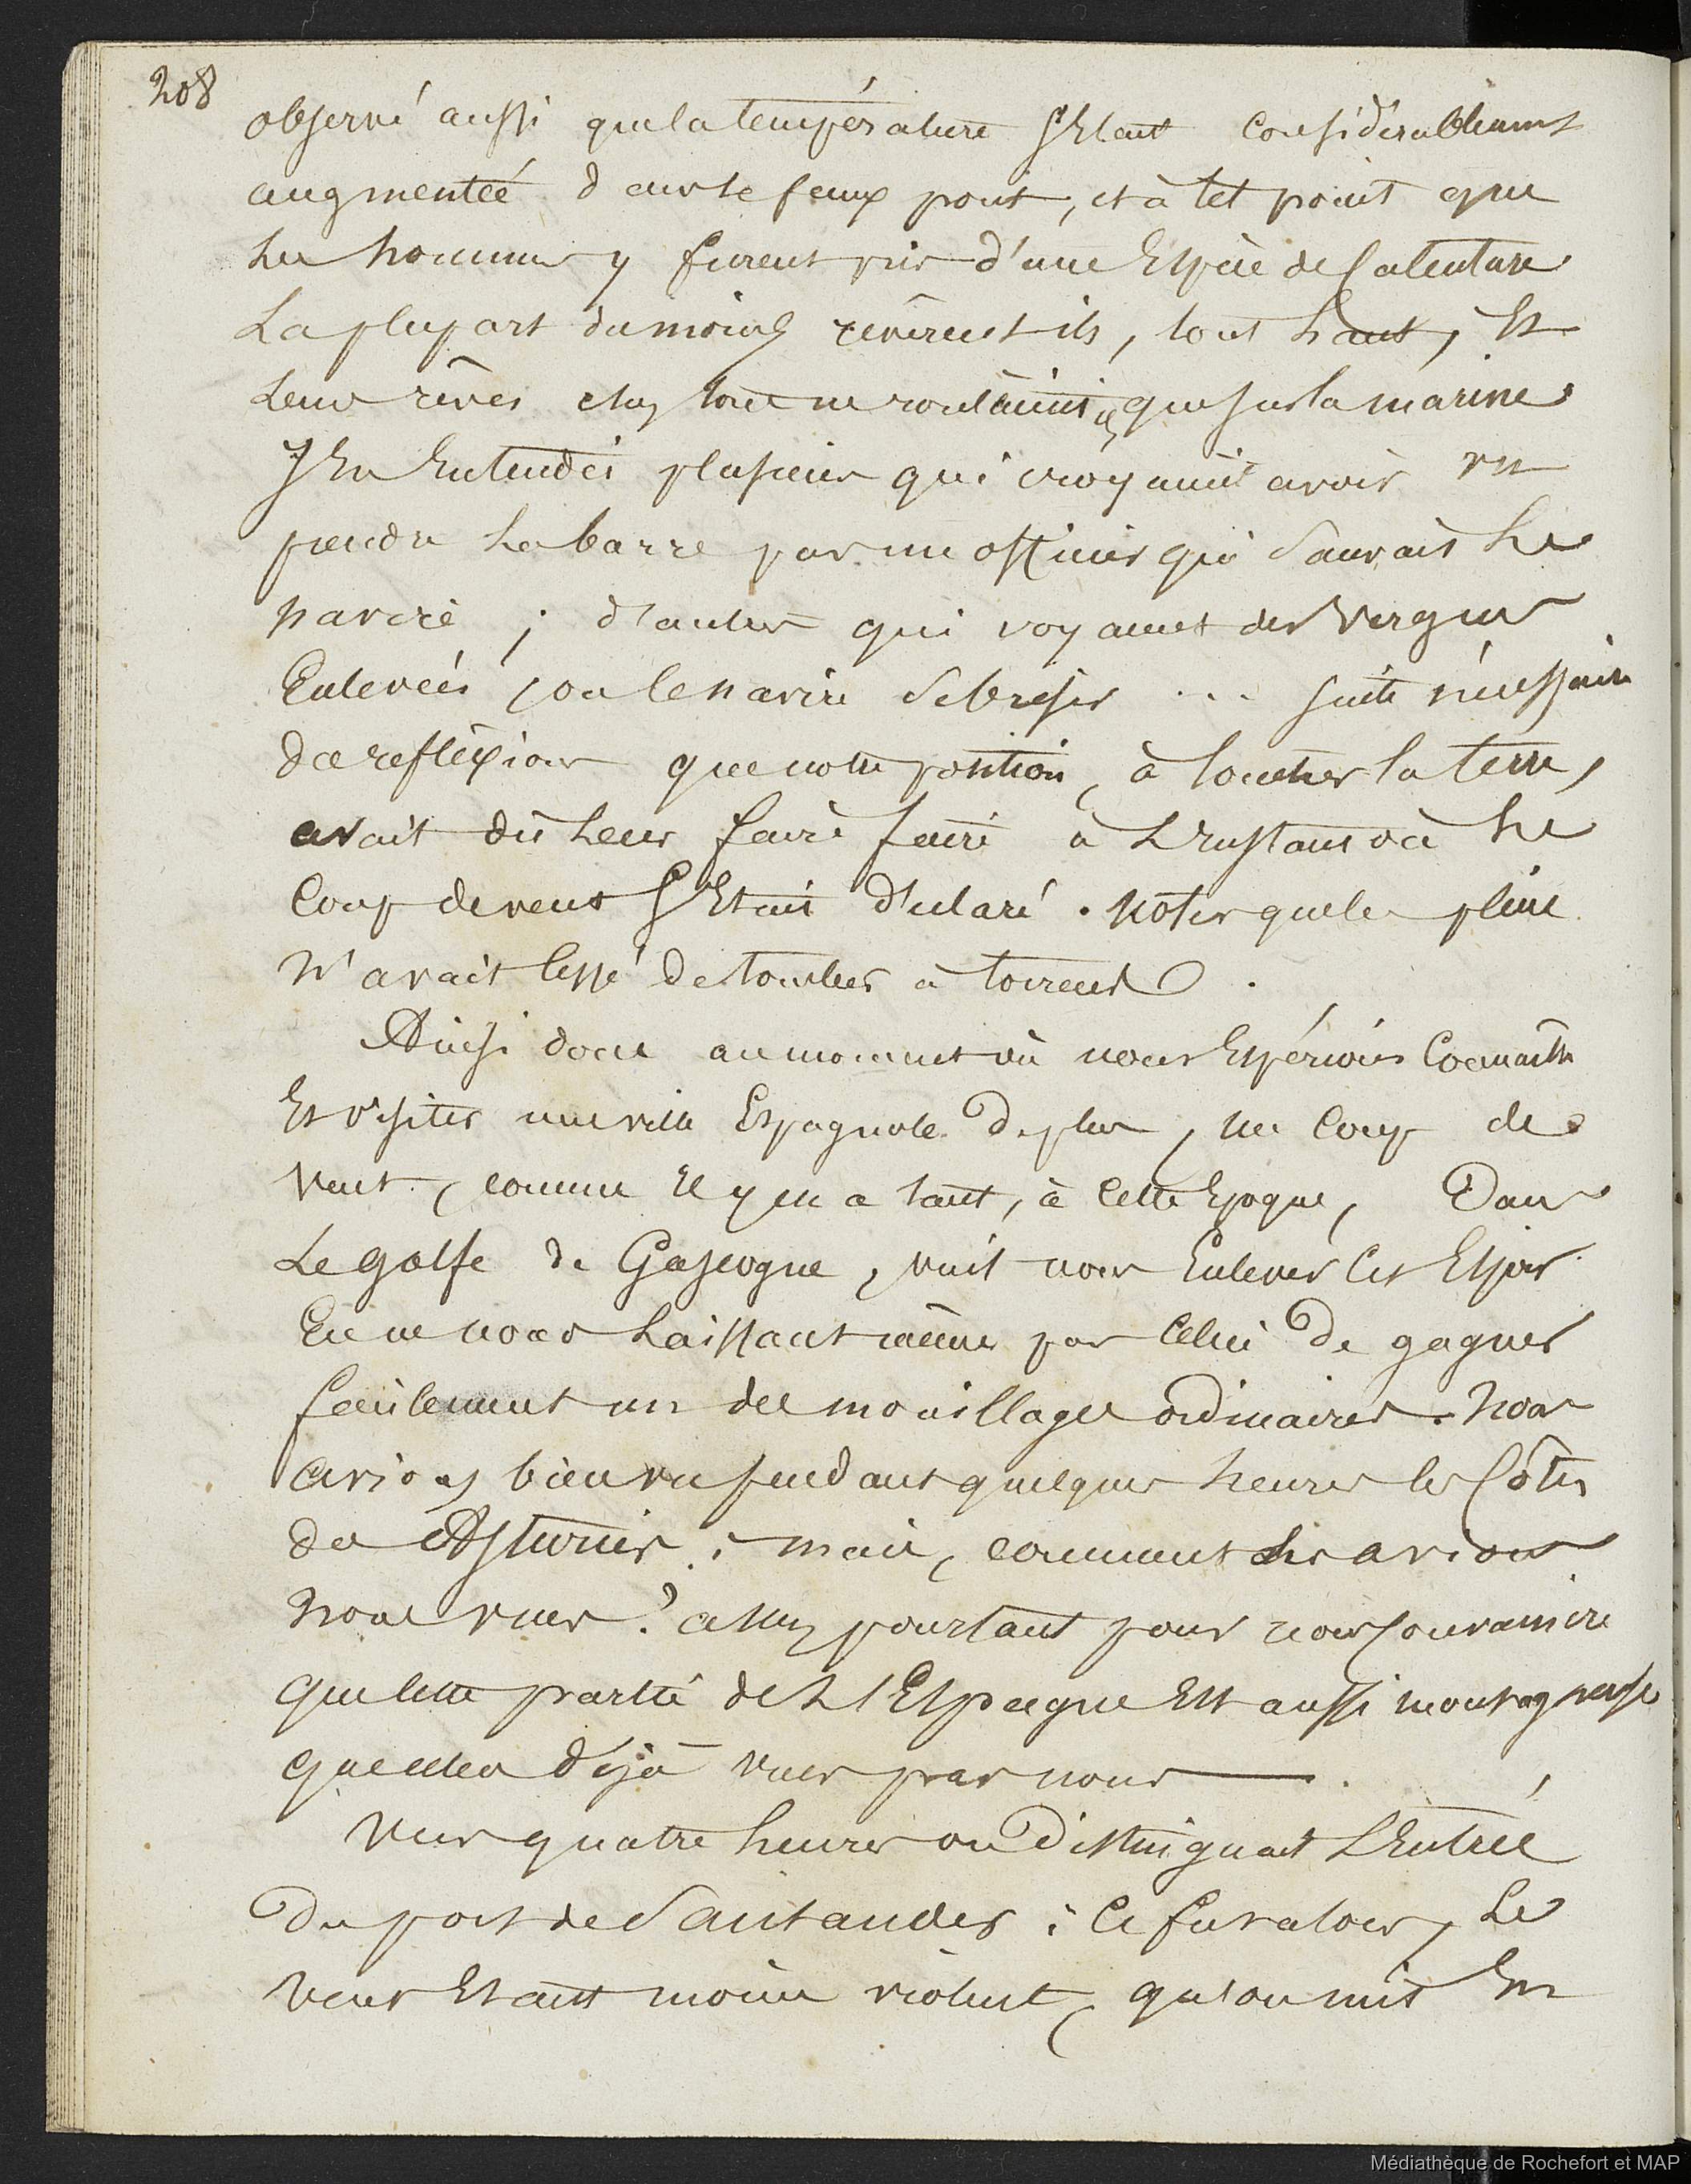 208
observé aussi que la température s'étant considérablement
augmentée dans le faux pont, et à tel point que
les hommes y furent pris d'une Espèce de Calenture
La plupart du moins révèrent ils, tout haut, Et
Leurs rêves chez tous ne roulaient que sur la marine
J'En Entendis plusieurs qui croyaient avoir vu
prendre la barre par un officier qui sauvait le
navire ; d'autres qui voyaient des vergues
Enlevées, ou le navire se briser ... suite nécessaire
des reflèxions que notre position, à toucher la terre,
avait dû leur faire faire à L'Instant où le
Coup de vent s'Etait déclaré. Noter que la pluie
N'avait cessé de tomber à torrent.
Ainsi donc au moment où nous Espérions Connaître
Et visiter une ville Espagnole de plus, un Coup de
Vent, comme Il y en a tant, à Cette Epoque, Dans
Le golfe de Gascogne, vint nous Enlever Cet Espoir
En ne nous Laissant même pas Celui de gagner
facilement un des mouillages ordinaires. Nous
avions bien vu pendant quelques heures les Côtes
des Asturies ; mais, comment les avions
Nous vues ? assez pourtant pour nous Convaincre
que cette partie de L'Espagne Est aussi montagneuse
que celles déjà vues par nous.
Vers quatre heures on Distinguait L'Entrée
Du port de Santander ; Ce fut alors, Le
Vent Etant moins violent, qu'on mit En
Médiathèque de Rochefort et MAP